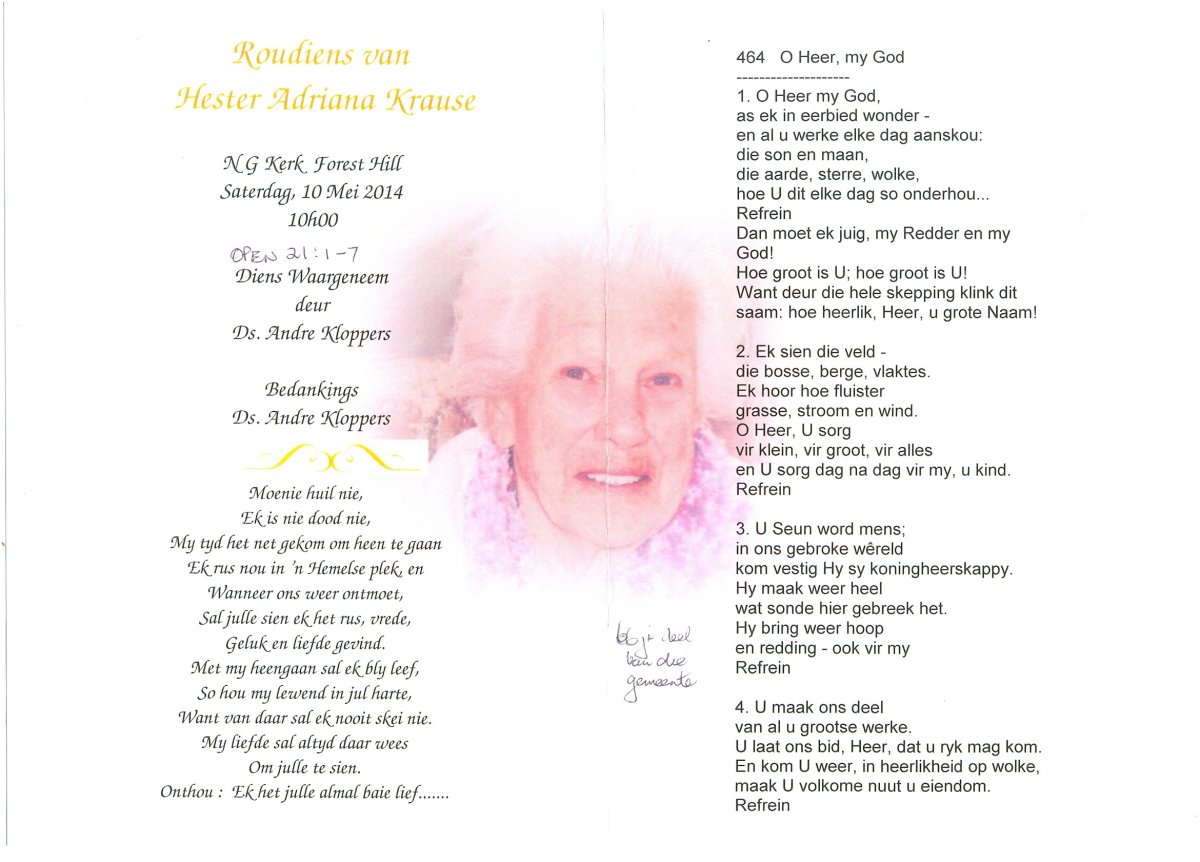 Roudiens van
Hester Adriana Krause
N G Kerk Forest Hill
Saterdag, 10 Mei 2014
10h00
OPEN 21:1-7
Diens Waargeneem
deur
Ds. Andre Kloppers
Bedankings
Ds. Andre Kloppers
Moenie huil nie,
Ek is nie dood nie,
My tyd het net gekom om heen te gaan
Ek rus nou in 'n Hemelse plek, en
Wanneer ons weer ontmoet,
Sal julle sien ek het rus, vrede,
Geluk en liefde gevind.
Met my heengaan sal ek bly leef,
So hou my lewend in jul harte,
Want van daar sal ek nooit skei nie.
My liefde sal altyd daar wees
Om julle te sien.
Onthou : Ek het julle almal baie lief.......
deel
van die
gemeente
464 O Heer, my God
--------------------
1. O Heer my God,
as ek in eerbied wonder -
en al u werke elke dag aanskou:
die son en maan,
die aarde, sterre, wolke,
hoe U dit elke dag so onderhou...
Refrein
Dan moet ek juig, my Redder en my
God!
Hoe groot is U; hoe groot is U!
Want deur die hele skepping klink dit
saam: hoe heerlik, Heer, u grote Naam!
2. Ek sien die veld -
die bosse, berge, vlaktes.
Ek hoor hoe fluister
grasse, stroom en wind.
O Heer, U sorg
vir klein, vir groot, vir alles
en U sorg dag na dag vir my, u kind.
Refrein
3. U Seun word mens;
in ons gebroke wêreld
kom vestig Hy sy koningheerskappy.
Hy maak weer heel
wat sonde hier gebreek het.
Hy bring weer hoop
en redding - ook vir my
Refrein
4. U maak ons deel
van al u grootse werke.
U laat ons bid, Heer, dat u ryk mag kom.
En kom U weer, in heerlikheid op wolke,
maak U volkome nuut u eiendom.
Refrein